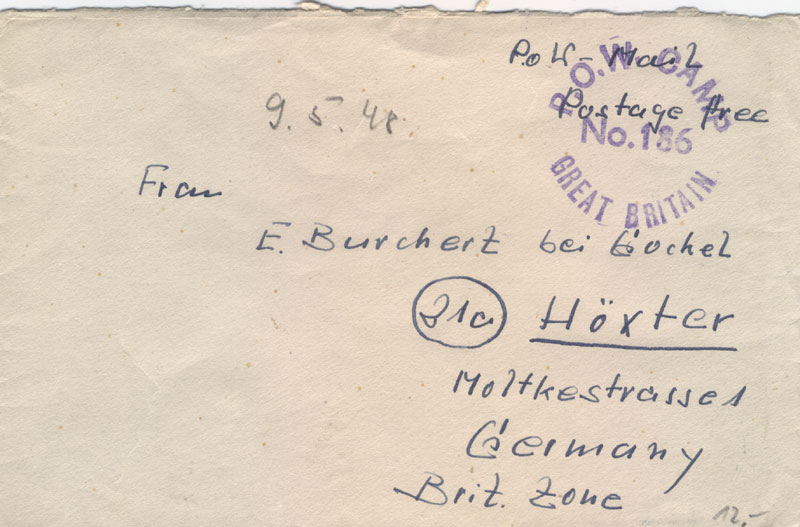 P.o.W-Mail
Postage free
P.O.W. CAMP
No. 186
GREAT BRITAIN
9.5.48.
Frau
E. Burchert bei Gochel
21a Höxter
Moltkestrasse 1
Germany
Brit. Zone
12,-